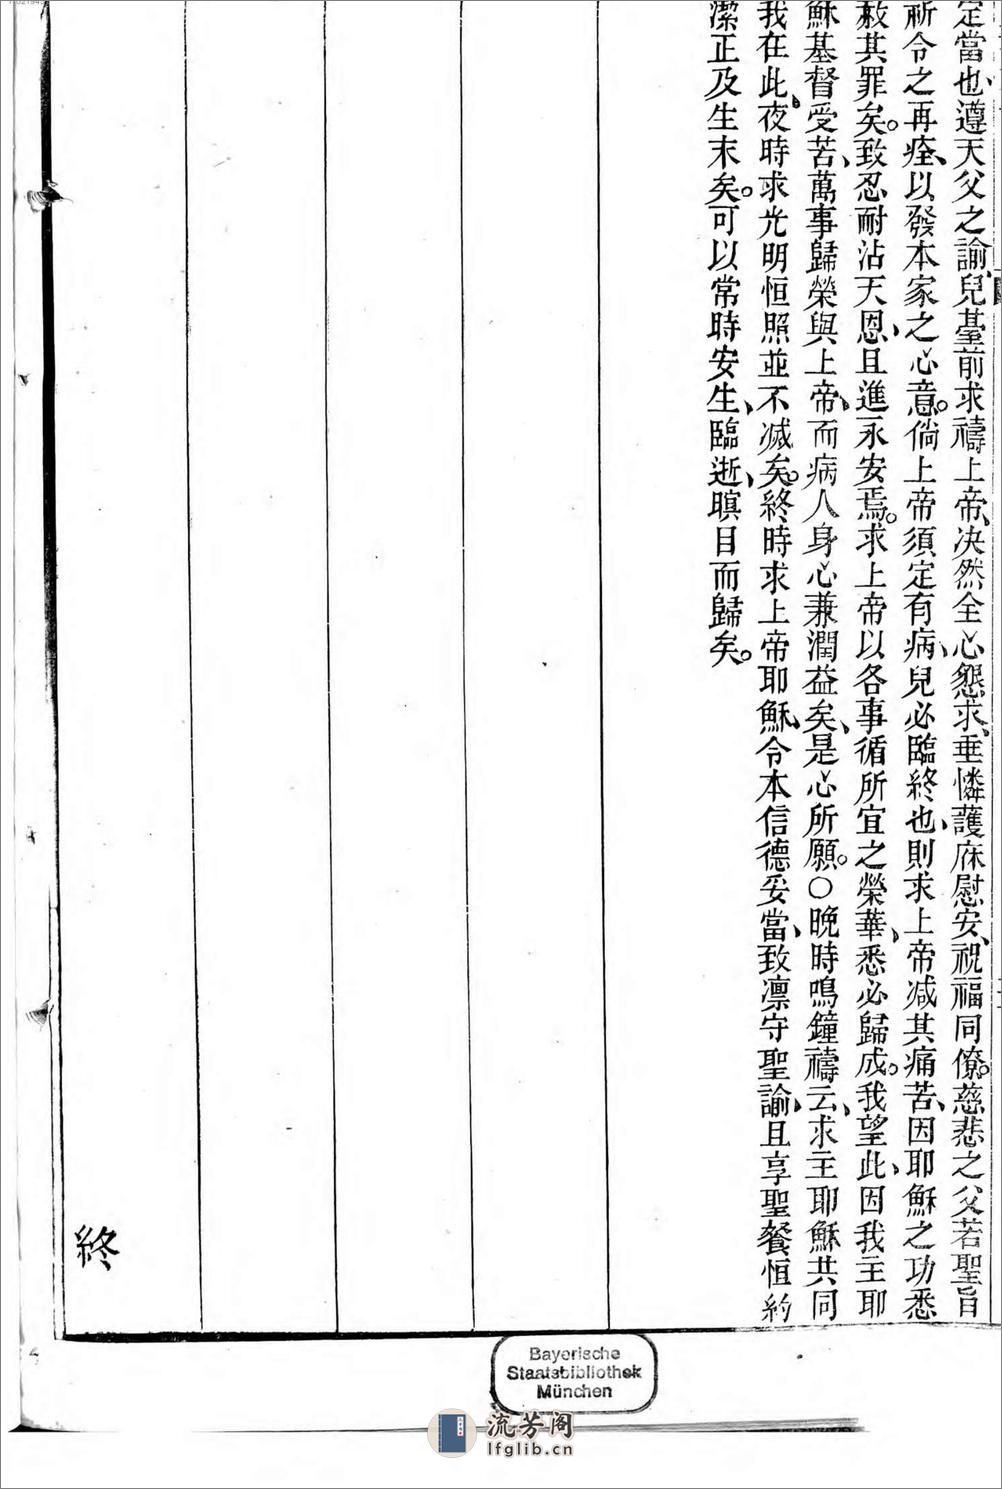 定當也、遵天父之諭、兒臺前求禱上帝、决然全心懇求、垂憐護庥慰安、祝福同僚。慈悲之父若聖旨
祈令之再痊、以發本家之心意。倘上帝須定有病、兒必臨終也、則求上帝减其痛苦、因耶穌之功悉
赦其罪矣。致忍耐沾天恩、且進永安焉。求上帝以各事循所宜之榮華、悉必歸成。我望此、因我主耶
穌基督受苦、萬事歸榮與上帝、而病人身心兼潤益矣、是心所願。○晚時鳴鐘禱云、求主耶穌共同
我在此、夜時求光明恒照並不滅矣。終時求上帝耶穌、令本信德妥當、致凛守聖諭、且享聖餐恒約
潔正及生末矣。可以常時安生、臨逝、瞑目而歸矣。
終
Bayerische
Staatsbibliothek
München
流芳阁
lfglib.cn